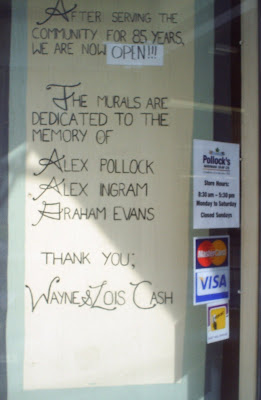 AFTER SERVING THE
COMMUNITY FOR 85 YEARS,
WE ARE NOW OPEN!!!
THE MURALS ARE
DEDICATED TO THE
MEMORY OF
ALEX POLLOCK
ALEX INGRAM
GRAHAM EVANS
THANK YOU;
WAYNE & LOIS CASH
Pollock's
Store Hours:
8:30 am - 5:30 pm
Monday to Saturday
Closed Sundays
MasterCard
VISA